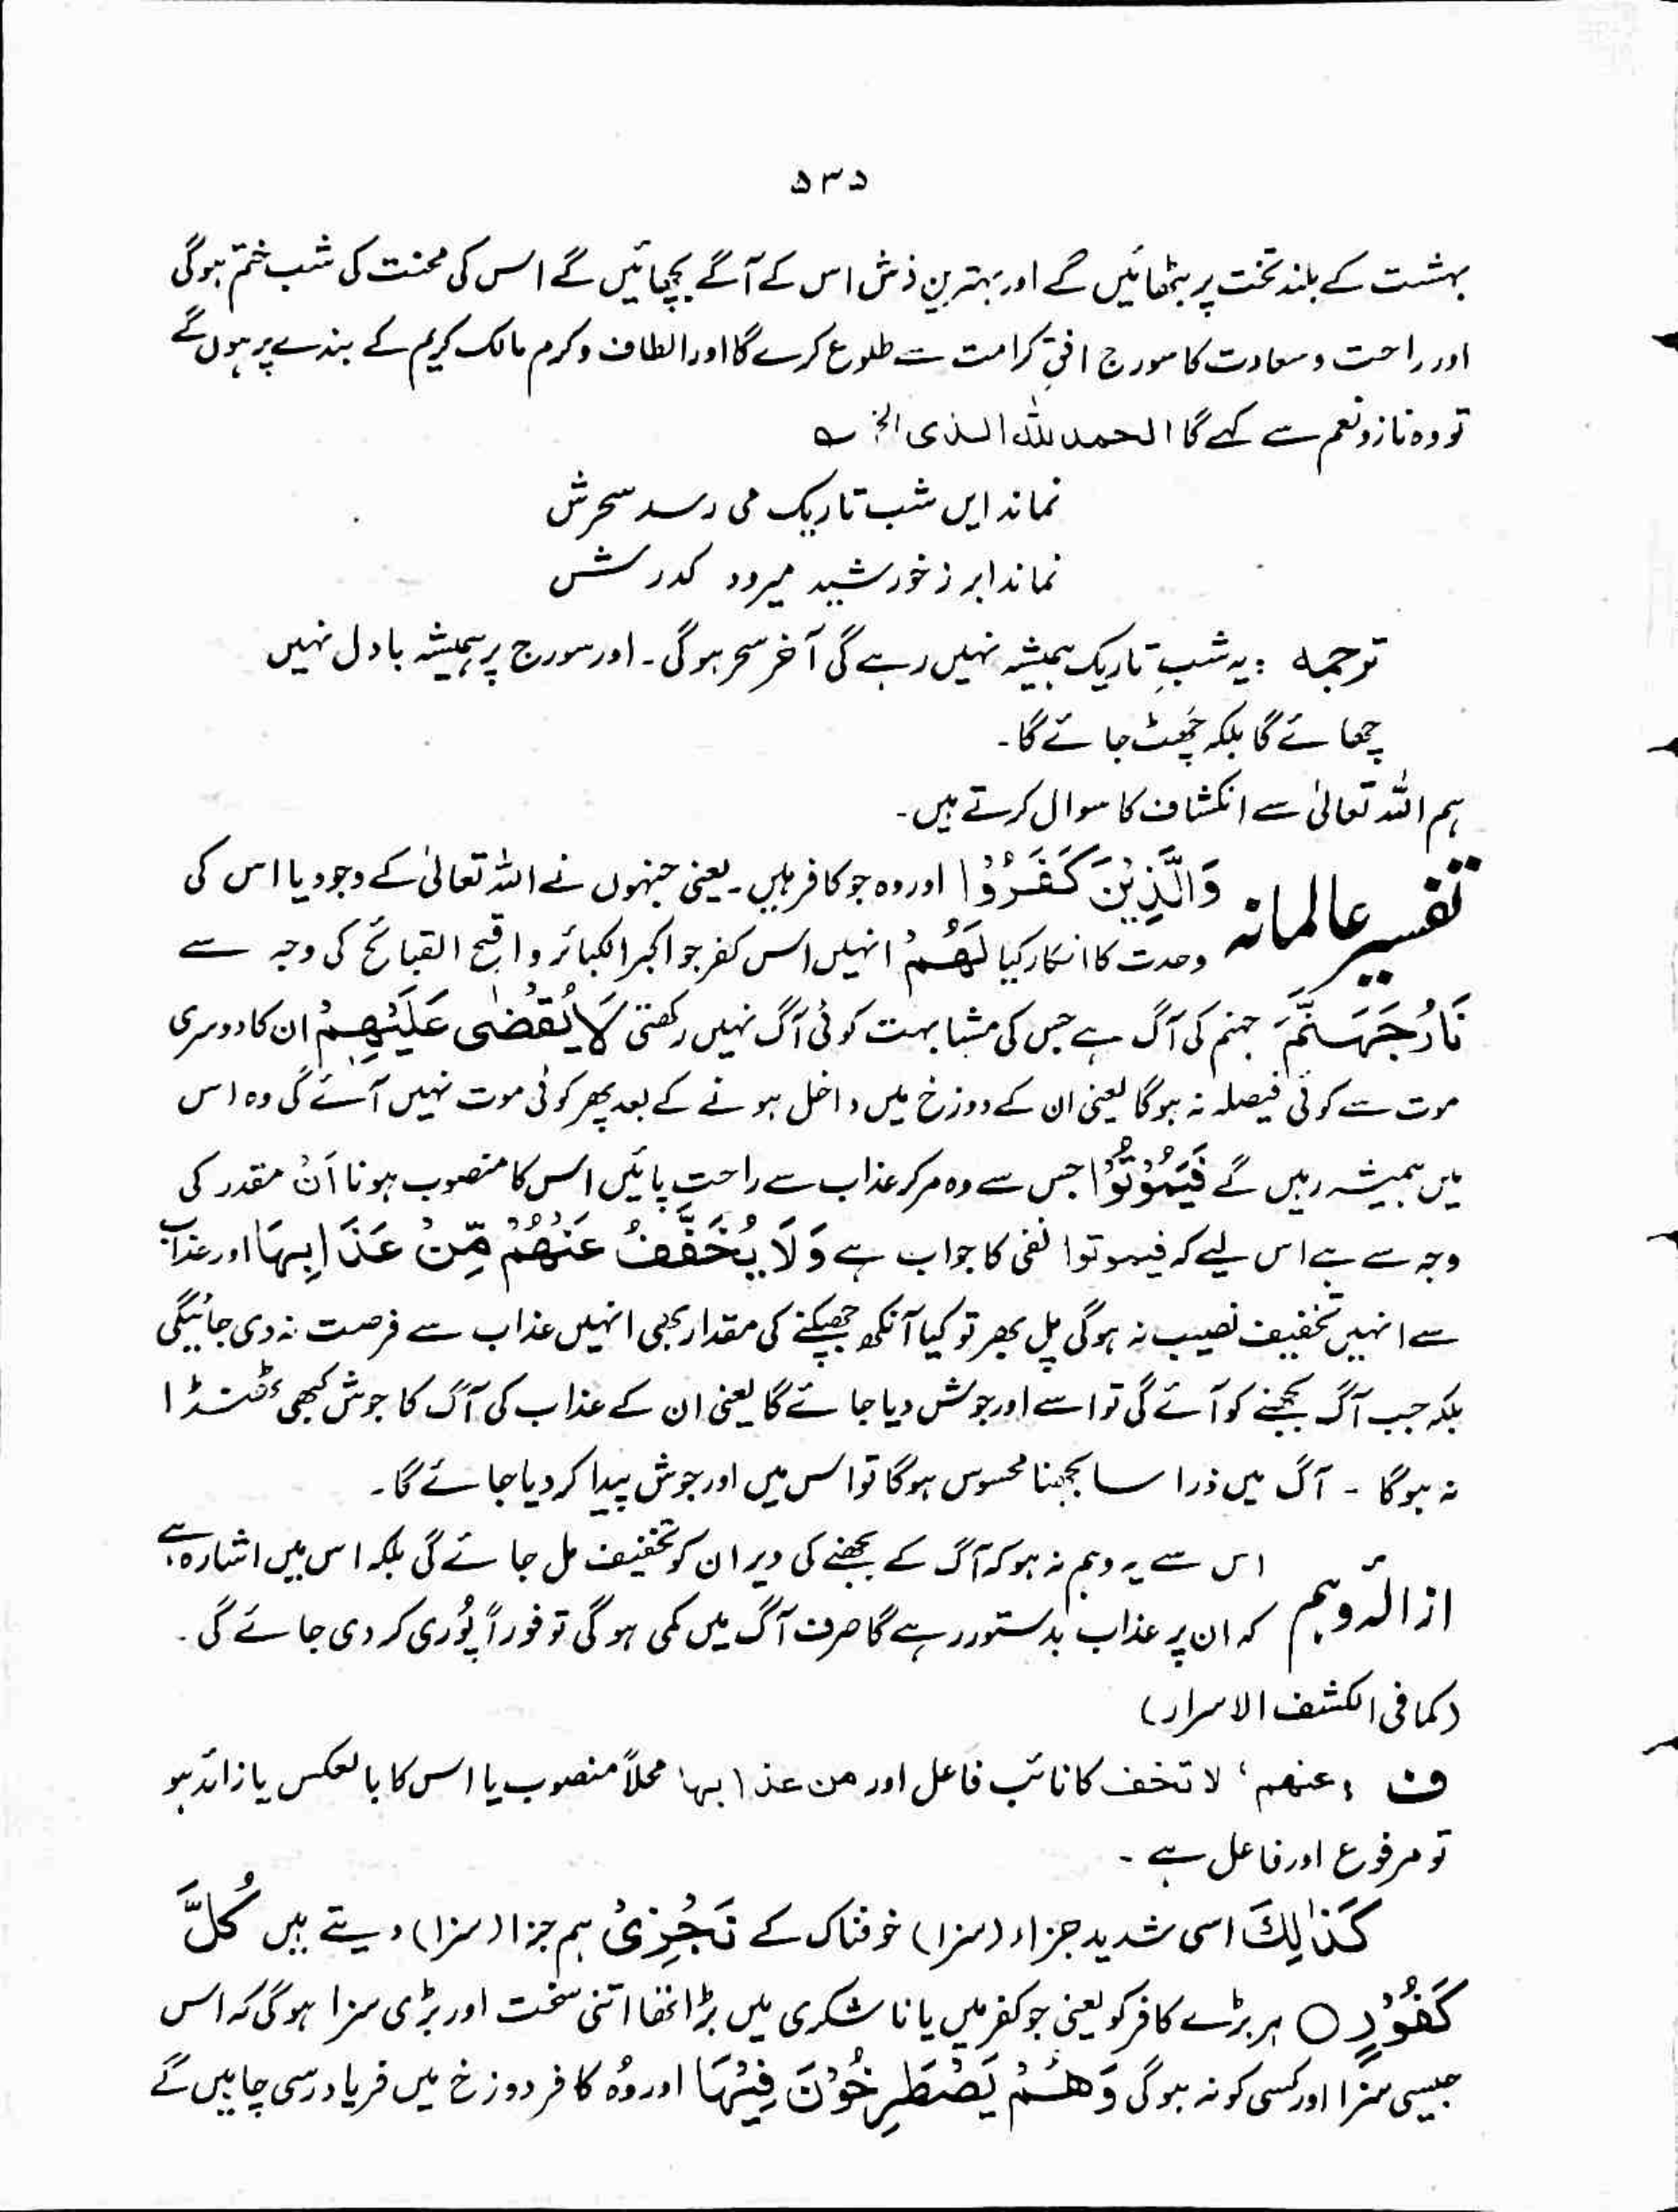 ۵۳۵
بہشت کے بلند تخت پر بٹھائیں گے اور بہترین فرش اس کے آگے بچھائیں گے اس کی محنت کی شب ختم ہوگی
اور راحت و سعادت کا سورج افقِ کرامت سے طلوع کرے گا اور الطاف و کرم مالک کریم کے بندے پر ہوں گے
تو وہ ناز و نعم سے کہے گا الحمد للہ الذی الخ ؎
نماند ایں شب تاریک می رسد سحرش
نماند ابر ز خورشید میرود کدرش
ترجمہ : یہ شبِ تاریک ہمیشہ نہیں رہے گی آخر سحر ہوگی۔ اور سورج پر ہمیشہ بادل نہیں
چھائے گا بلکہ چُھٹ جائے گا۔
ہم اللہ تعالیٰ سے انکشاف کا سوال کرتے ہیں۔
تفسیر عالمانہ وَالَّذِیْنَ کَفَرُوْا اور وہ جو کافر ہیں۔ یعنی جنہوں نے اللہ تعالیٰ کے وجود یا اس کی
وحدت کا انکار کیا لَهُمْ انہیں اس کفر جو اکبر الکبائر و اقبح القبائح کی وجہ سے
نَارُ جَهَنَّمَ جہنم کی آگ ہے جس کی مشابہت کوئی آگ نہیں رکھتی لَا یُقْضٰی عَلَیْهِمْ ان کا دوسری
موت سے کوئی فیصلہ نہ ہوگا یعنی ان کے دوزخ میں داخل ہونے کے بعد پھر کوئی موت نہیں آئے گی وہ اس
میں ہمیشہ رہیں گے فَیَمُوْتُوْا جس سے وہ مر کر عذاب سے راحت پائیں اس کا منصوب ہونا اَنْ مقدر کی
وجہ سے ہے اس لیے کہ فیموتوا نفی کا جواب ہے وَلَا یُخَفَّفُ عَنْهُمْ مِّنْ عَذَابِهَا اور عذاب
سے انہیں تخفیف نصیب نہ ہوگی پل بھر تو کیا آنکھ جھپکنے کی مقدار بھی انہیں عذاب سے فرصت نہ دی جائیگی
بلکہ جب آگ بجھنے کو آئے گی تو اسے اور جوش دیا جائے گا یعنی ان کے عذاب کی آگ کا جوش کبھی ٹھنڈا
نہ ہوگا ۔ آگ میں ذرا سا بجھنا محسوس ہوگا تو اس میں اور جوش پیدا کر دیا جائے گا۔
ازالۂ وہم اس سے یہ وہم نہ ہو کہ آگ کے بجھنے کی دیر ان کو تخفیف مل جائے گی بلکہ اس میں اشارہ ہے
کہ ان پر عذاب بدستور رہے گا صرف آگ میں کمی ہوگی تو فوراً پُوری کر دی جائے گی۔
(کما فی الکشف الاسرار)
ف : عنھم ، لا تخف کا نائب فاعل اور من عذابہا محلاً منصوب یا اس کا بالعکس یا زائد ہو
تو مرفوع اور فاعل ہے ۔
کَذٰلِكَ اسی شدید جزاء (سزا) خوفناک کے نَجْزِیْ ہم جزا (سزا) دیتے ہیں کُلَّ
کَفُوْرٍ ○ ہر بڑے کافر کو یعنی جو کفر میں یا ناشکری میں بڑا تھا اتنی سخت اور بڑی سزا ہوگی کہ اس
جیسی سزا اور کسی کو نہ ہوگی وَهُمْ یَصْطَرِخُوْنَ فِیْهَا اور وُہ کافر دوزخ میں فریاد رسی چاہیں گے